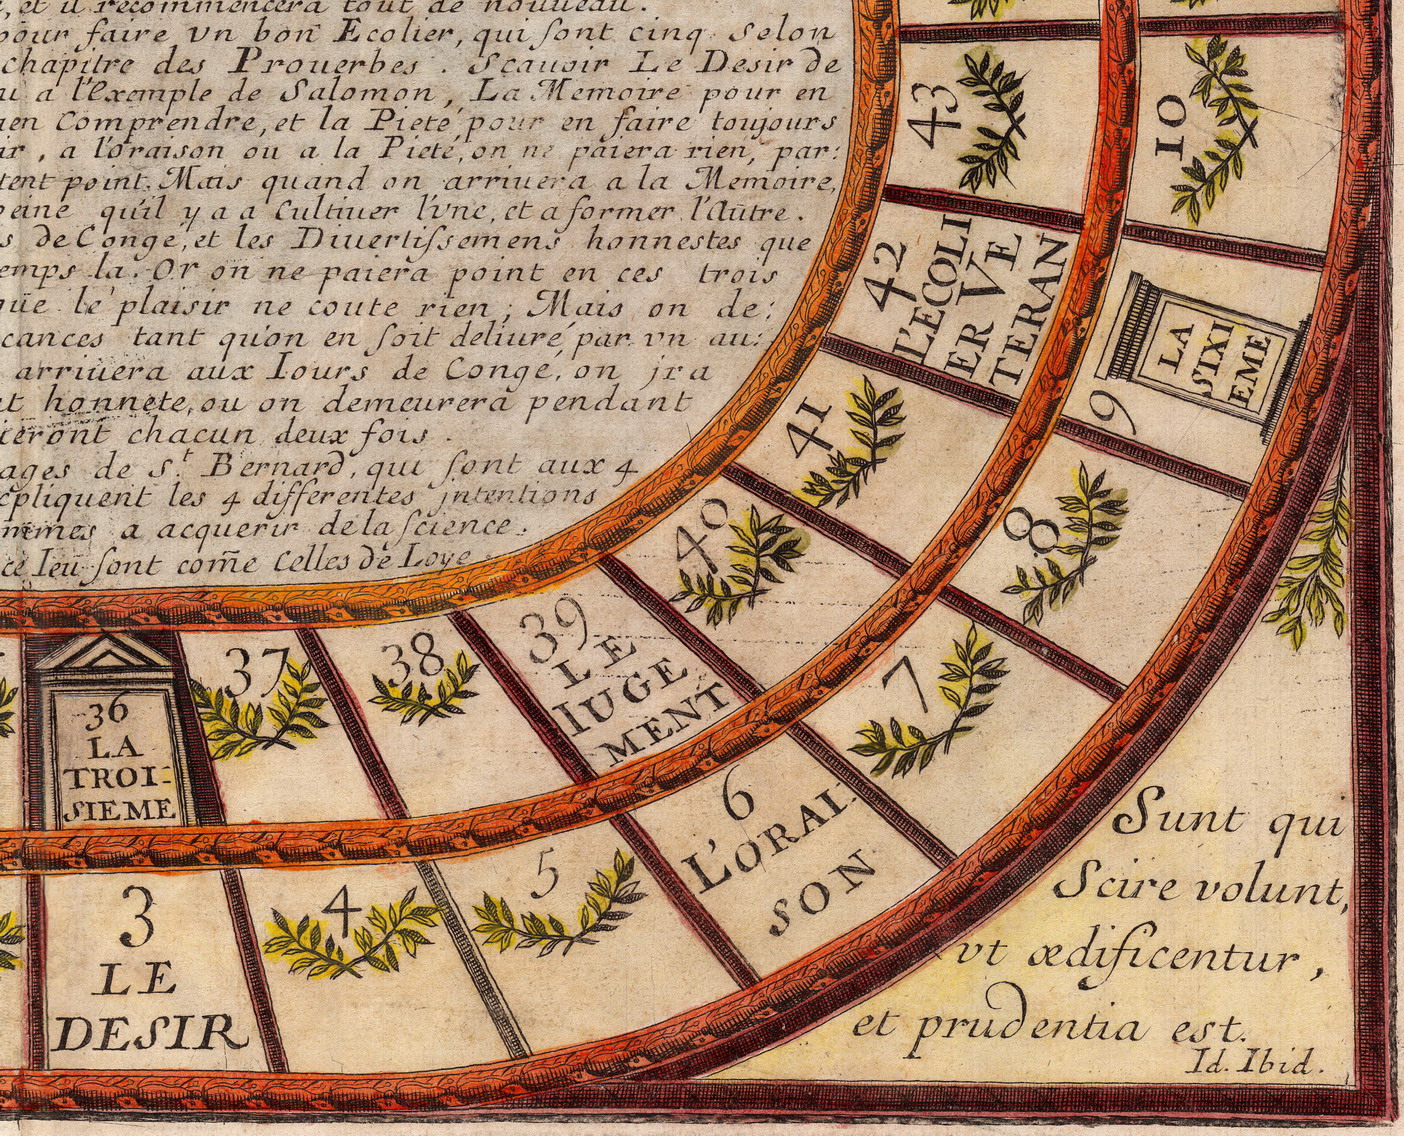 , et il recommencera tout de nouueau.
pour faire vn bon Ecolier, qui sont cinq Selon
chapitre des Prouerbes. Scauoir Le Desir de
a l'Exemple de Salomon, La Memoire pour en
ien Comprendre, et la Pieté, pour en faire toujours
ir, a l'oraison ou a la Pieté, on ne paiera rien, par:
tent point. Mais quand on arriuera a la Memoire,
peine qu'il y a a Cultiuer l'vne, et a former l'Autre.
s de Congé, et les Diuertissemens honnestes que
emps la. Or on ne paiera point en ces trois
que le plaisir ne coute rien; Mais on de:
cances tant qu'on en soit deliuré par vn au:
arriuera aux Iours de Congé, on jra
t honnete, ou on demeurera pendant
ieront chacun deux fois.
ages de St Bernard, qui sont aux 4
xpliquent les 4 differentes jntentions
ommes a acquerir de la science.
ce Ieu sont com̃e Celles de Loye
43
10
42
L'ECOLI
ER VE
TERAN
LA
SIXI
EME
9
41
8
40
39
LE
IUGE
MENT
38
37
36
LA
TROI:
SIEME
7
6
L'ORAI:
SON
5
4
3
LE
DESIR
Sunt qui
Scire volunt,
vt ædificentur,
et prudentia est.
Id. Ibid.